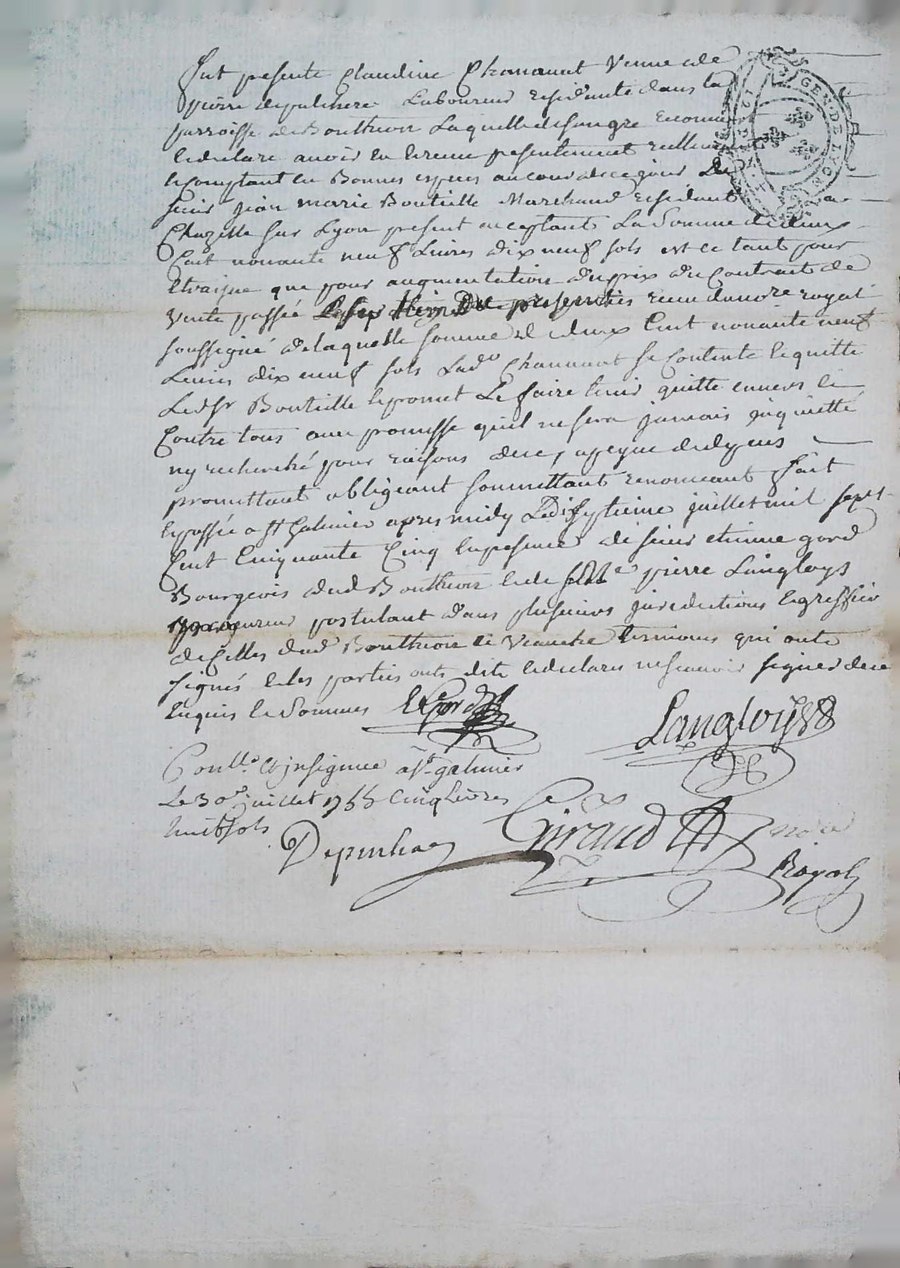 GEN. DE LYON
fut presente Claudine Chanauat Veuue de
pierre depulhere Laboureur residente dans la
parroisse de Boutheon Laquelle de son gre reconn
et declare auoir eu et receu presentement reellem
et comptant en Bonnes especes au cour de ce jour De
sieur jean marie Bouteille Marchand residant a
Chazelle sur Lyon present acceptant La Somme de deux
Cent nonante neuf Liures dix neuf sols et ce tant pour
Etraine que pour augmentation du prix du Contrait de
Vente passée presentes receu du nore royal
soussigné de laquelle somme de deux Cent nonante neuf
Liures dix neuf sols Lade Chanauat se Contente et quitte
Ledsr Bouteille et promet Le faire tenir quitte enuers et
Contre tous auec promesse quil ne sera jamais inquietté
ny recherché pour raisons de ce, a peyne de depens
promettant obligeant soumettant renonceant fait
et passée a st Galmier apres midy Le juillet mil sept
Cent Cinquante Cinq en presence de sieur etienne gord
Bourgeois dud Boutheon et de pierre Langloys
procureur postulant dans plusieurs jurisdictions et greffier
de Celles dud Boutheon et Veauche temoins qui onts
signés et les parties onts dit et declarés ne scauoir signer de ce
Enquis et Sommés
Langloys
Conllé et jnsignué a st galmier
Le 30e juillet 1755 Cinq Livres
huit sols
Depinhac
Giraud
nore
Royal